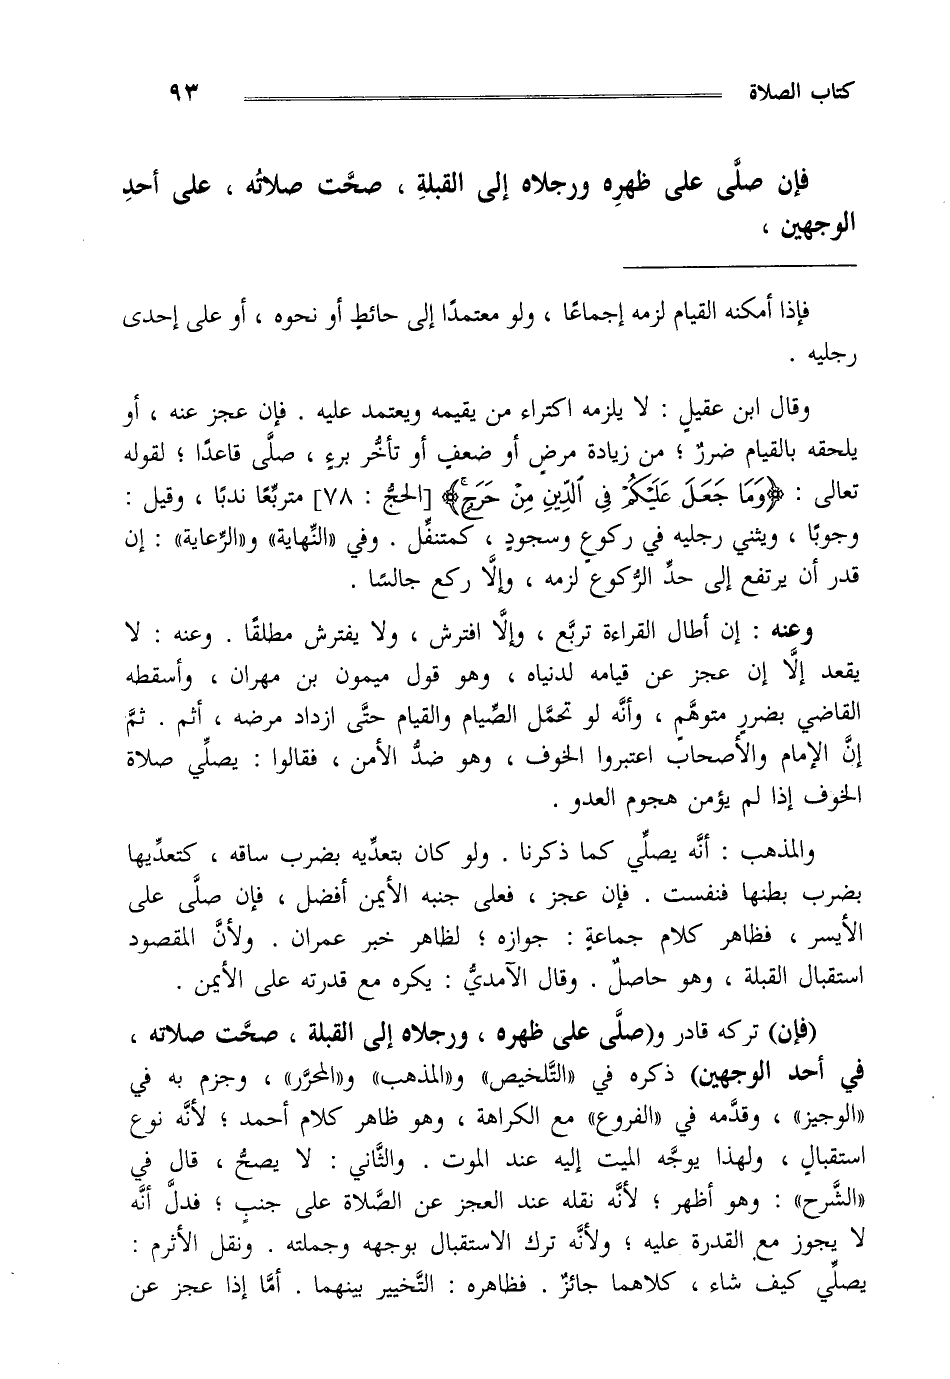 كتاب الصلاة ٩٣
فإن صلَّى على ظهرِه ورجلاه إلى القبلةِ ، صحَّت صلاتُه ، على أحدِ
الوجهين ،
فإذا أمكنه القيام لزمه إجماعًا ، ولو معتمدًا إلى حائطٍ أو نحوه ، أو على إحدى
رجليه .
وقال ابن عقيلٍ : لا يلزمه اكتراء من يقيمه ويعتمد عليه . فإن عجز عنه ، أو
يلحقه بالقيام ضررٌ ؛ من زيادة مرضٍ أو ضعفٍ أو تأخُّر برءٍ ، صلَّى قاعدًا ؛ لقوله
تعالى : ﴿وَمَا جَعَلَ عَلَيْكُمْ فِي ٱلدِّينِ مِنْ حَرَجٍ﴾ [الحجُّ : ٧٨] متربِّعًا ندبًا ، وقيل :
وجوبًا ، ويثني رجليه في ركوعٍ وسجودٍ ، كمتنفِّل . وفي «النِّهاية» و«الرِّعاية» : إن
قدر أن يرتفع إلى حدِّ الرُّكوع لزمه ، وإلَّا ركع جالسًا .
وعنه : إن أطال القراءة تربَّع ، وإلَّا افترش ، ولا يفترش مطلقًا . وعنه : لا
يقعد إلَّا إن عجز عن قيامه لدنياه ، وهو قول ميمون بن مهران ، وأسقطه
القاضي بضررٍ متوهَّمٍ ، وأنَّه لو تحمَّل الصِّيام والقيام حتَّى ازداد مرضه ، أثم . ثمَّ
إنَّ الإمام والأصحاب اعتبروا الخوف ، وهو ضدُّ الأمن ، فقالوا : يصلِّي صلاة
الخوف إذا لم يؤمن هجوم العدو .
والمذهب : أنَّه يصلِّي كما ذكرنا . ولو كان بتعدِّيه بضرب ساقه ، كتعدِّيها
بضرب بطنها فنفست . فإن عجز ، فعلى جنبه الأيمن أفضل ، فإن صلَّى على
الأيسر ، فظاهر كلام جماعةٍ : جوازه ؛ لظاهر خبر عمران . ولأنَّ المقصود
استقبال القبلة ، وهو حاصلٌ . وقال الآمديُّ : يكره مع قدرته على الأيمن .
(فإن) تركه قادر و(صلَّى على ظهره ، ورجلاه إلى القبلة ، صحَّت صلاته ،
في أحد الوجهين) ذكره في «التَّلخيص» و«المذهب» و«المحرَّر» ، وجزم به في
«الوجيز» ، وقدَّمه في «الفروع» مع الكراهة ، وهو ظاهر كلام أحمد ؛ لأنَّه نوع
استقبالٍ ، ولهذا يوجَّه الميت إليه عند الموت . والثَّاني : لا يصحُّ ، قال في
«الشَّرح» : وهو أظهر ؛ لأنَّه نقله عند العجز عن الصَّلاة على جنبٍ ؛ فدلَّ أنَّه
لا يجوز مع القدرة عليه ؛ ولأنَّه ترك الاستقبال بوجهه وجملته . ونقل الأثرم :
يصلِّي كيف شاء ، كلاهما جائزٌ . فظاهره : التَّخيير بينهما . أمَّا إذا عجز عن